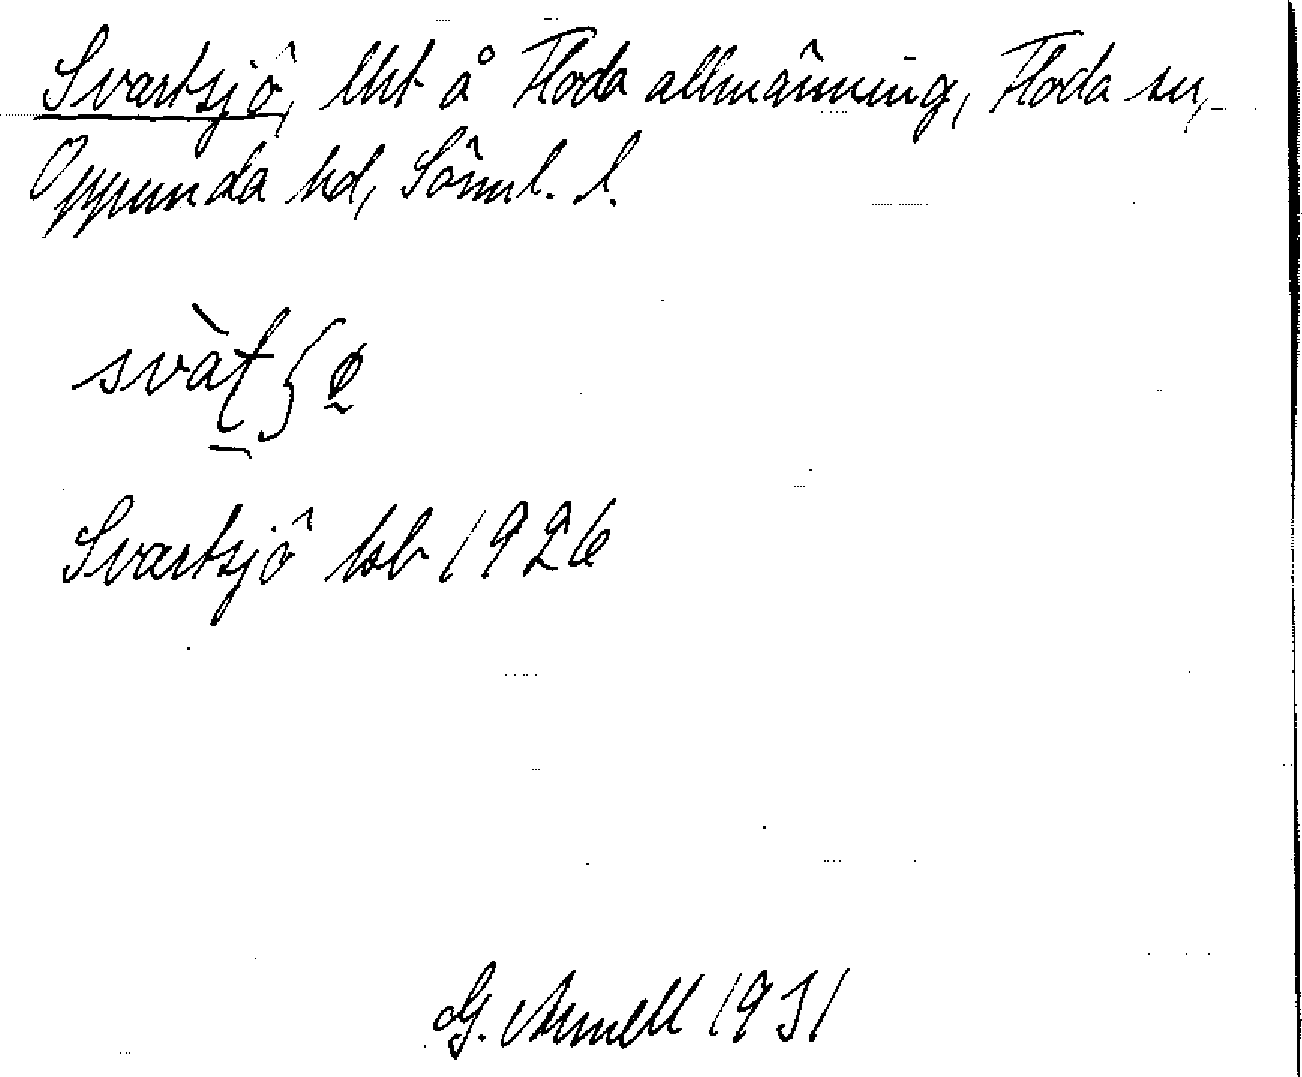 Svartsjö, lht å Floda allmänning, Floda sn,
Oppunda hd, Sörml. l.
Svartsjö ksb 1926
G. Arnell 1931